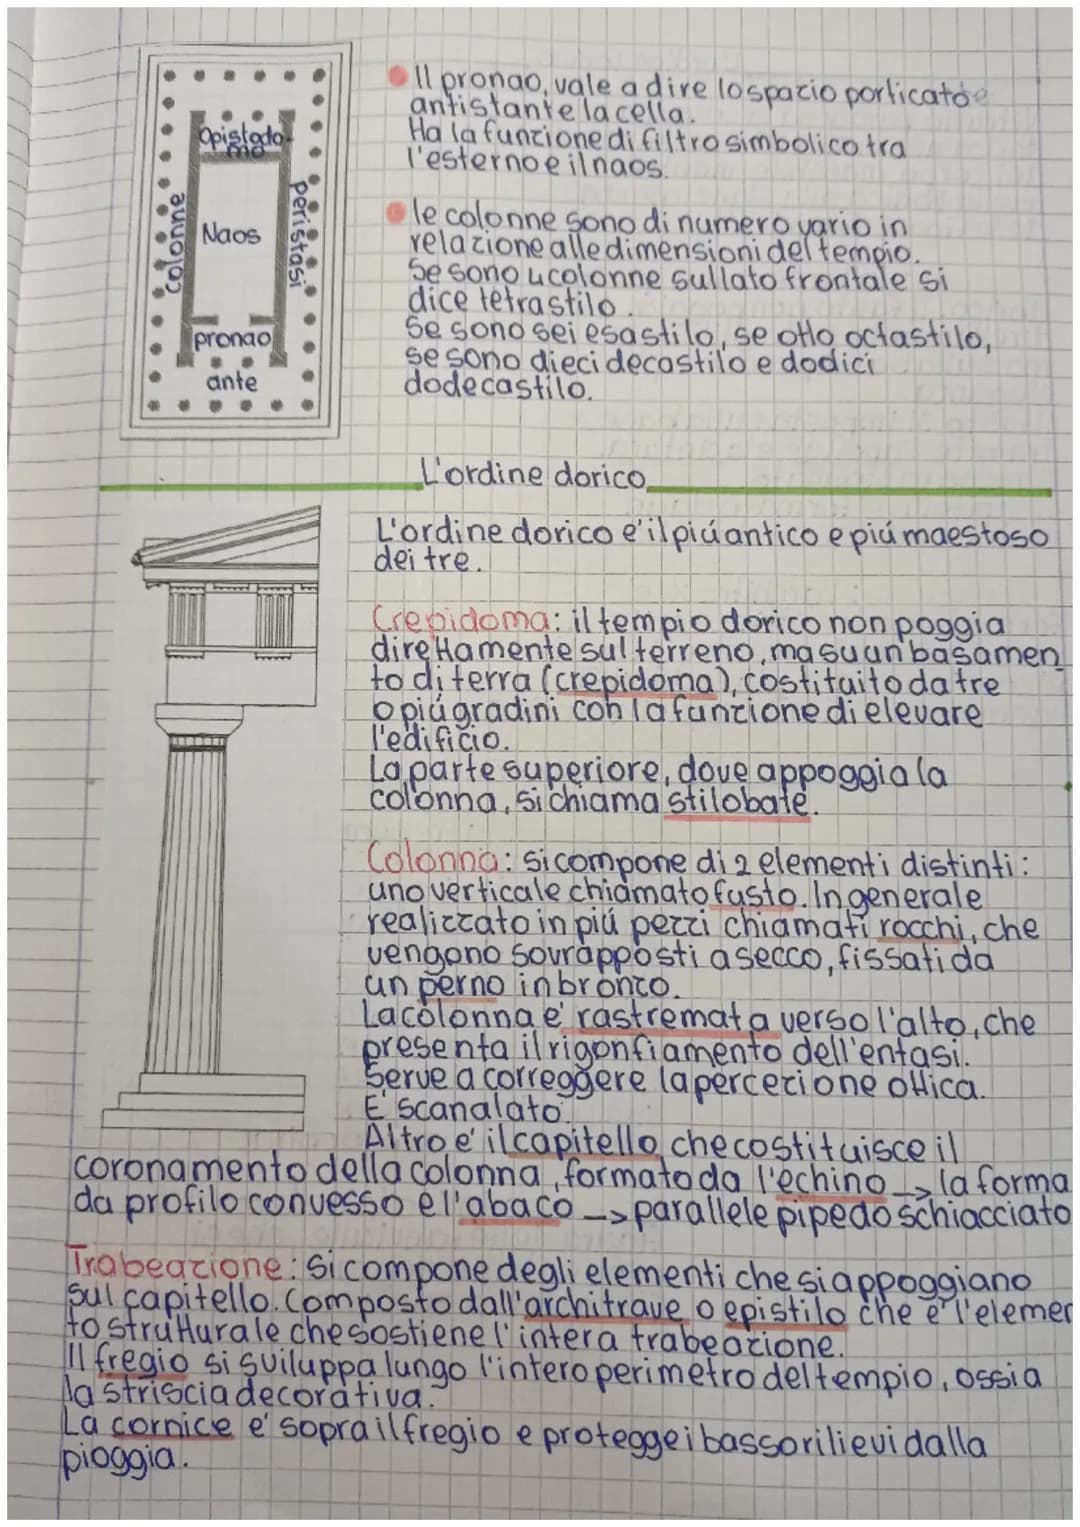 Opistodo-
mo
colonne
Naos
peristasi
pronao
ante
Il pronao, vale a dire lo spazio porticato e
antistante la cella.
Ha la funzione di filtro simbolico tra
l'esterno e il naos.
le colonne sono di numero vario in
relazione alle dimensioni del tempio.
Se sono 4 colonne sul lato frontale si
dice tetrastilo.
Se sono sei esastilo, se otto octastilo,
se sono dieci decastilo e dodici
dodecastilo.
L'ordine dorico
L'ordine dorico e' il piú antico e piú maestoso
dei tre.
Crepidoma: il tempio dorico non poggia
direttamente sul terreno, ma su un basamen
to di terra (crepidoma), costituito da tre
o piú gradini con la funzione di elevare
l'edificio.
La parte superiore, dove appoggia la
colonna, si chiama stilobate.
Colonna: si compone di 2 elementi distinti:
uno verticale chiamato fusto. In generale
realizzato in piú pezzi chiamati rocchi, che
vengono sovrapposti a secco, fissati da
un perno in bronzo.
La colonna e' rastremata verso l'alto, che
presenta il rigonfiamento dell'entasi.
Serve a correggere la percezione ottica.
E' scanalato.
Altro e' il capitello che costituisce il
coronamento della colonna, formato da l'echino -> la forma
da profilo convesso e l'abaco -> parallele pipedo schiacciato
Trabeazione: si compone degli elementi che si appoggiano
sul capitello. Composto dall'architrave o epistilo che e' l'elemen
to strutturale che sostiene l'intera trabeazione.
Il fregio si sviluppa lungo l'intero perimetro del tempio, ossia
la striscia decorativa.
La cornice e' sopra il fregio e protegge i bassorilievi dalla
pioggia.